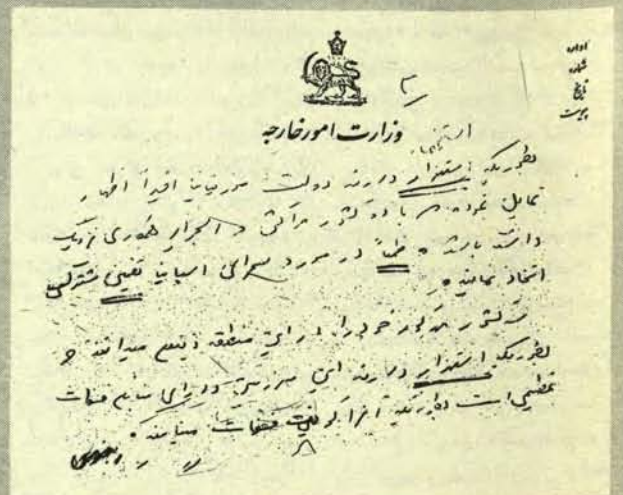 اداره
شماره
تاریخ
پیوست
وزارت امور خارجه
بطوریکه استحضار دارند دولت موریتانیا اخیراً اظهار
تمایل نموده با دو کشور مراکش و الجزایر همکاری نزدیک
داشته باشد و در مورد صحرای اسپانیا مشترکی
اتخاذ نمایند.
سه کشور مذکور خود را در این منطقه ذینفع میدانند
بطوریکه استحضار دارند این سرزمین دارای منابع فسفات
عظیمی است بطوریکه آنرا فسفات مینامند.